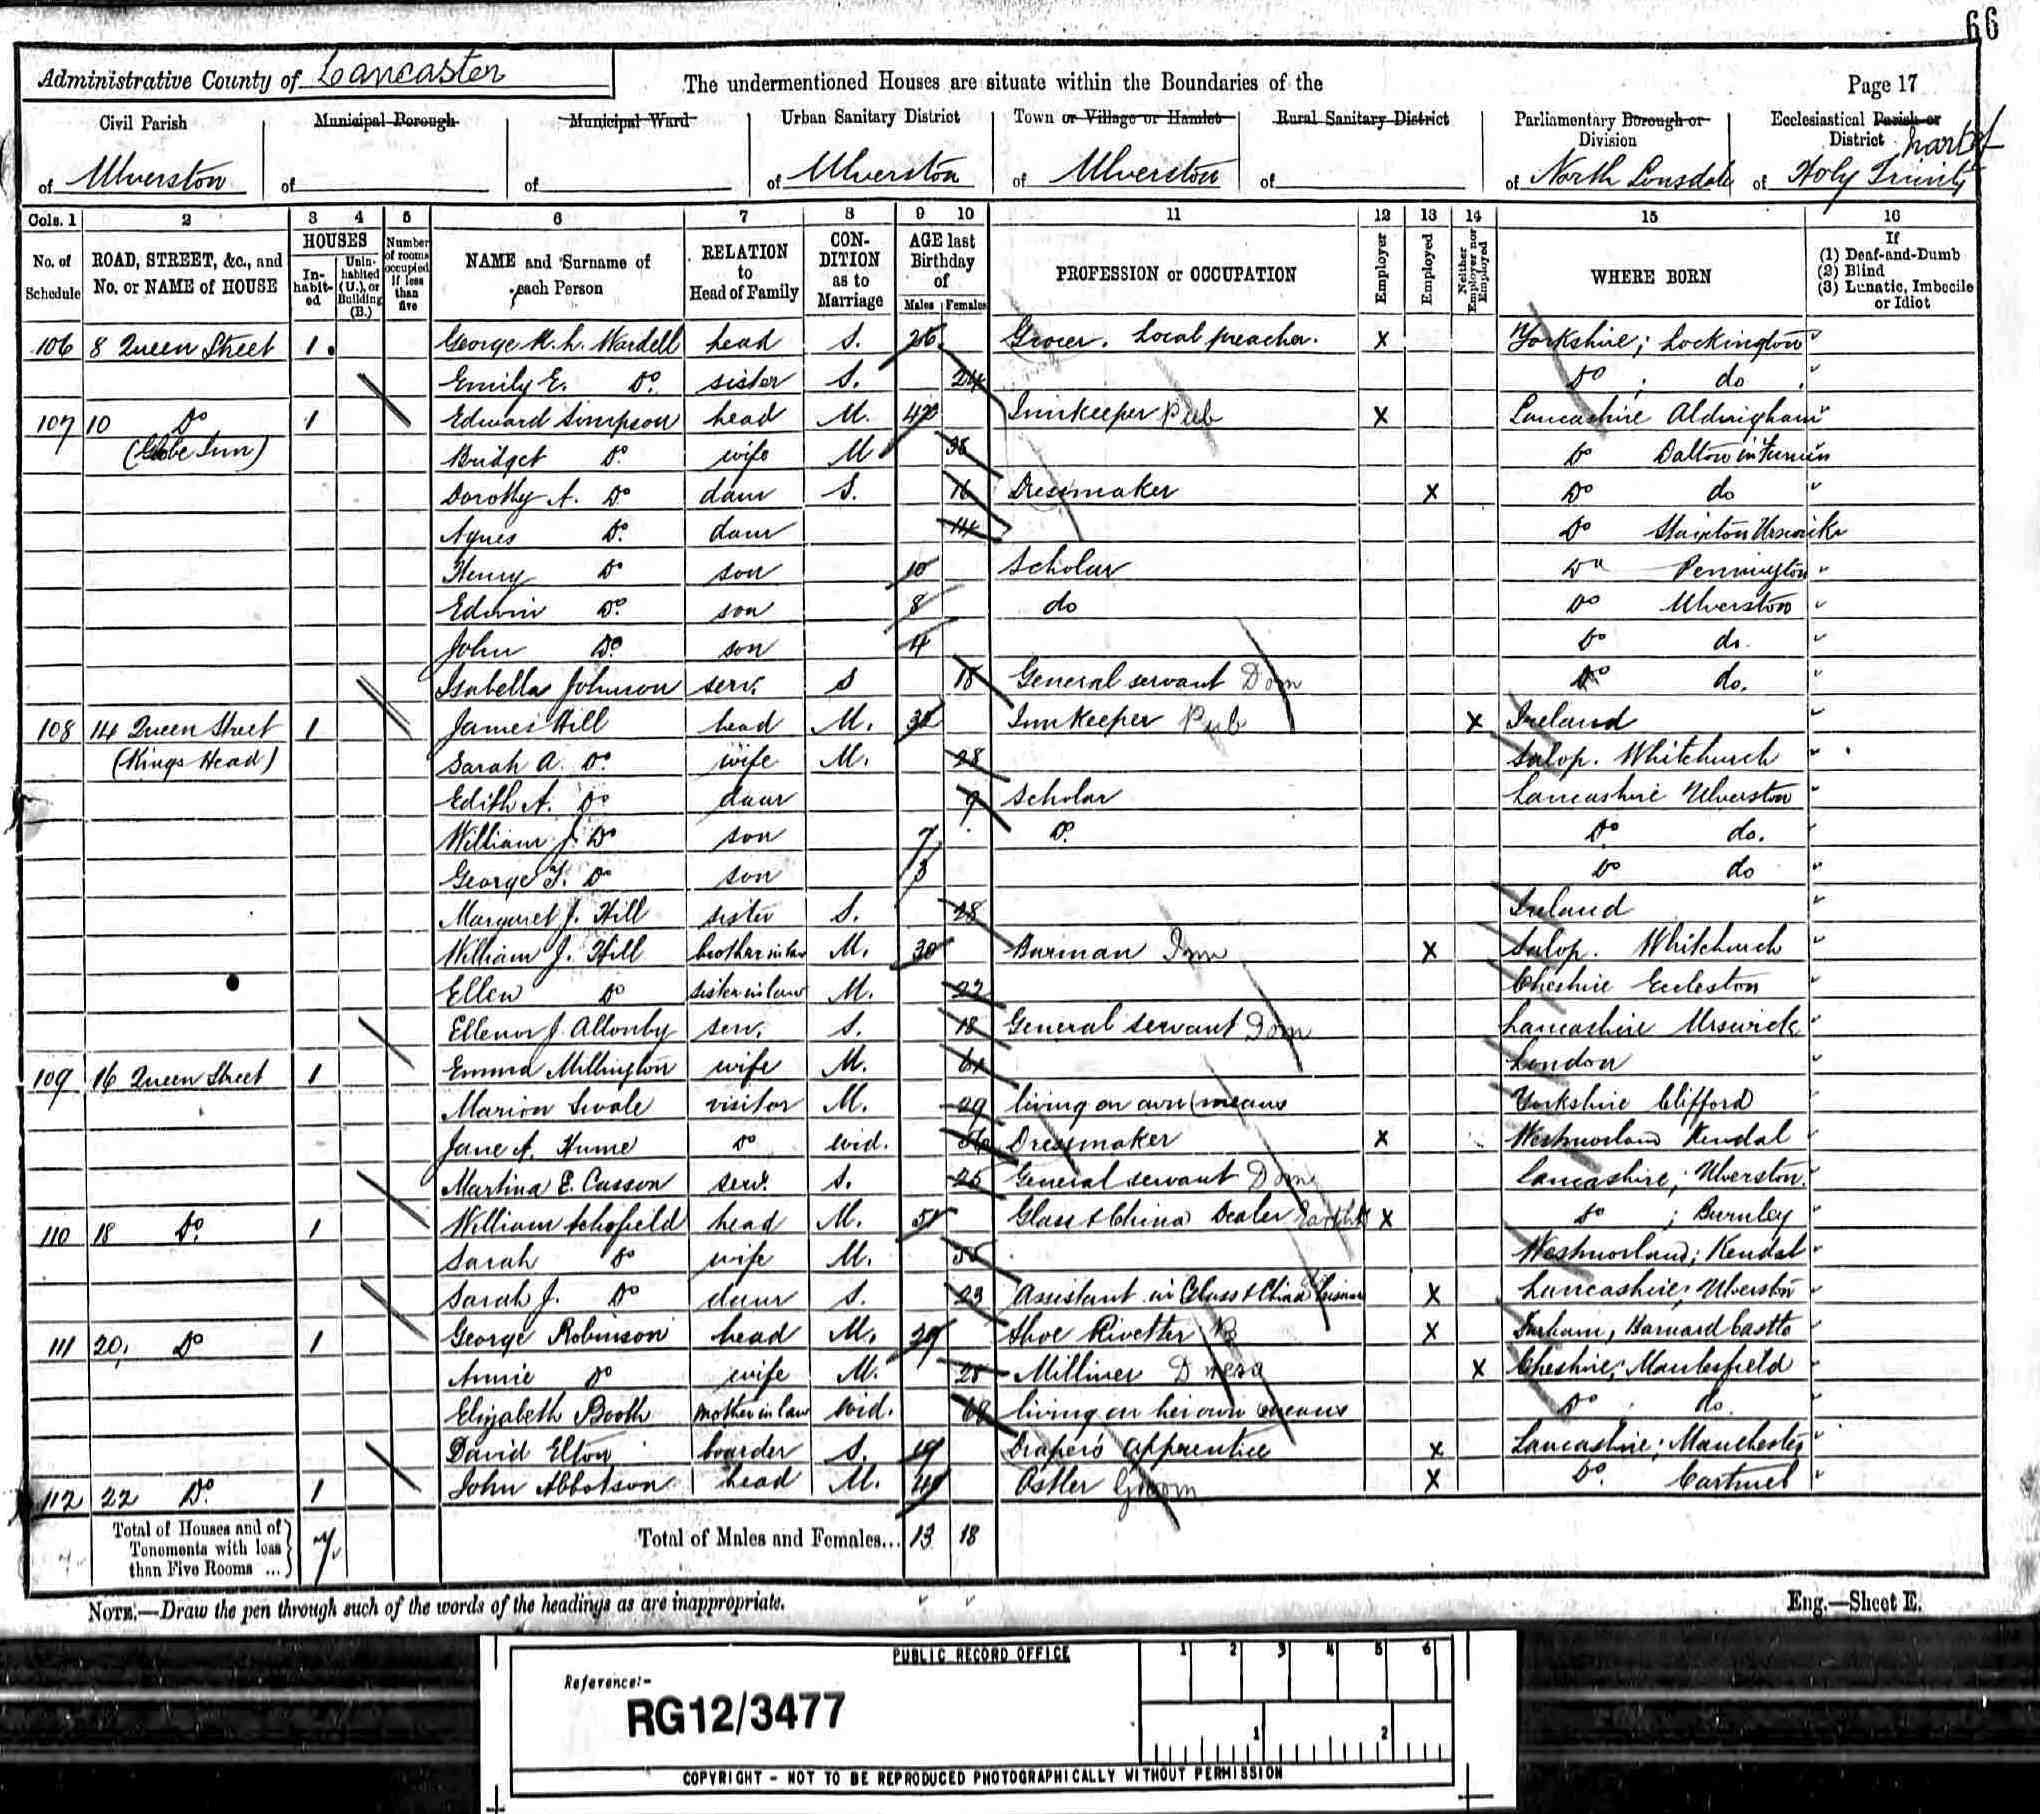 66
Administrative County of Lancaster The undermentioned Houses are situate within the Boundaries of the Page 17
Civil Parish Municipal Borough Municipal Ward Urban Sanitary District Town or Village or Hamlet Rural Sanitary District Parliamentary Borough or Division Ecclesiastical Parish or District part of
of Ulverston of of of Ulverston of Ulverston of of North Lonsdale of Holy Trinity
Cols. 1 2 3 4 5 6 7 8 9 10 11 12 13 14 15 16
No. of Schedule ROAD, STREET, &c., and No. or NAME of HOUSE HOUSES In-habit-ed Unin-habited (U.), or Building (B.) Number of rooms occupied if less than five NAME and Surname of each Person RELATION to Head of Family CON-DITION as to Marriage AGE last Birthday of Males Females PROFESSION or OCCUPATION Employer Employed Neither Employer nor Employed WHERE BORN If (1) Deaf-and-Dumb (2) Blind (3) Lunatic, Imbecile or Idiot
106 8 Queen Street 1 George R. L. Wardell head S. 26 Grocer. Local preacher. X Yorkshire; Lockington
Emily E. Do sister S. 24 Do do
107 10 Do 1 Edward Simpson head M. 42 Innkeeper Pub X Lancashire Aldingham
(Globe Inn) Bridget Do wife M 38 Do Dalton in Furness
Dorothy A. Do daur S. 16 Dressmaker X Do do
Agnes Do daur 14 Do Stainton Urswick
Henry Do son 10 Scholar Do Pennington
Edwin Do son 8 do Do Ulverston
John Do son 4 Do do
Isabella Johnson serv. S 18 General servant Dom Do do.
108 14 Queen Street 1 James Hill head M. Innkeeper Pub X Ireland
(Kings Head) Sarah A. Do wife M. 28 Salop. Whitchurch
Edith A. Do daur 9 Scholar Lancashire Ulverston
William J. Do son 7 Do Do do.
George F. Do son 3 Do do
Margaret J. Hill sister S. 28 Ireland
William J. Hill brother in law M. 30 Barman Inn X Salop. Whitchurch
Ellen Do sister in law M. 22 Cheshire Eccleston
Ellenor J. Allonby serv. S. 18 General servant Dom Lancashire Urswick
109 16 Queen Street 1 Emma Millington wife M. 61 London
Marion Swale visitor M. 29 living on own means Yorkshire Clifford
Jane A. Hume Do wid. Dressmaker X Westmorland Kendal
Martina E. Casson serv. S. 25 General servant Dom Lancashire; Ulverston.
110 18 Do 1 William Schofield head M. 51 Glass & China Dealer X Do ; Burnley
Sarah Do wife M. Westmorland; Kendal
Sarah J. Do daur S. 23 Assistant in Glass & China X Lancashire; Ulverston
111 20, Do 1 George Robinson head M. 29 Shoe Rivetter X Durham, Barnard Castle
Annie Do wife M. 28 Milliner X Cheshire; Macclesfield
Elizabeth Booth mother in law wid. 68 living on her own means Do do.
David Elton boarder S. 19 Drapers apprentice X Lancashire; Manchester
112 22 Do 1 John Abbotson head M. Ostler Groom X Do. Cartmel
Total of Houses and of Tenements with less than Five Rooms ... 7 Total of Males and Females... 13 18
NOTE.—Draw the pen through such of the words of the headings as are inappropriate. Eng.—Sheet E.
PUBLIC RECORD OFFICE 1 2 3 4 5 6
Reference:-
RG12/3477
1 2
COPYRIGHT - NOT TO BE REPRODUCED PHOTOGRAPHICALLY WITHOUT PERMISSION